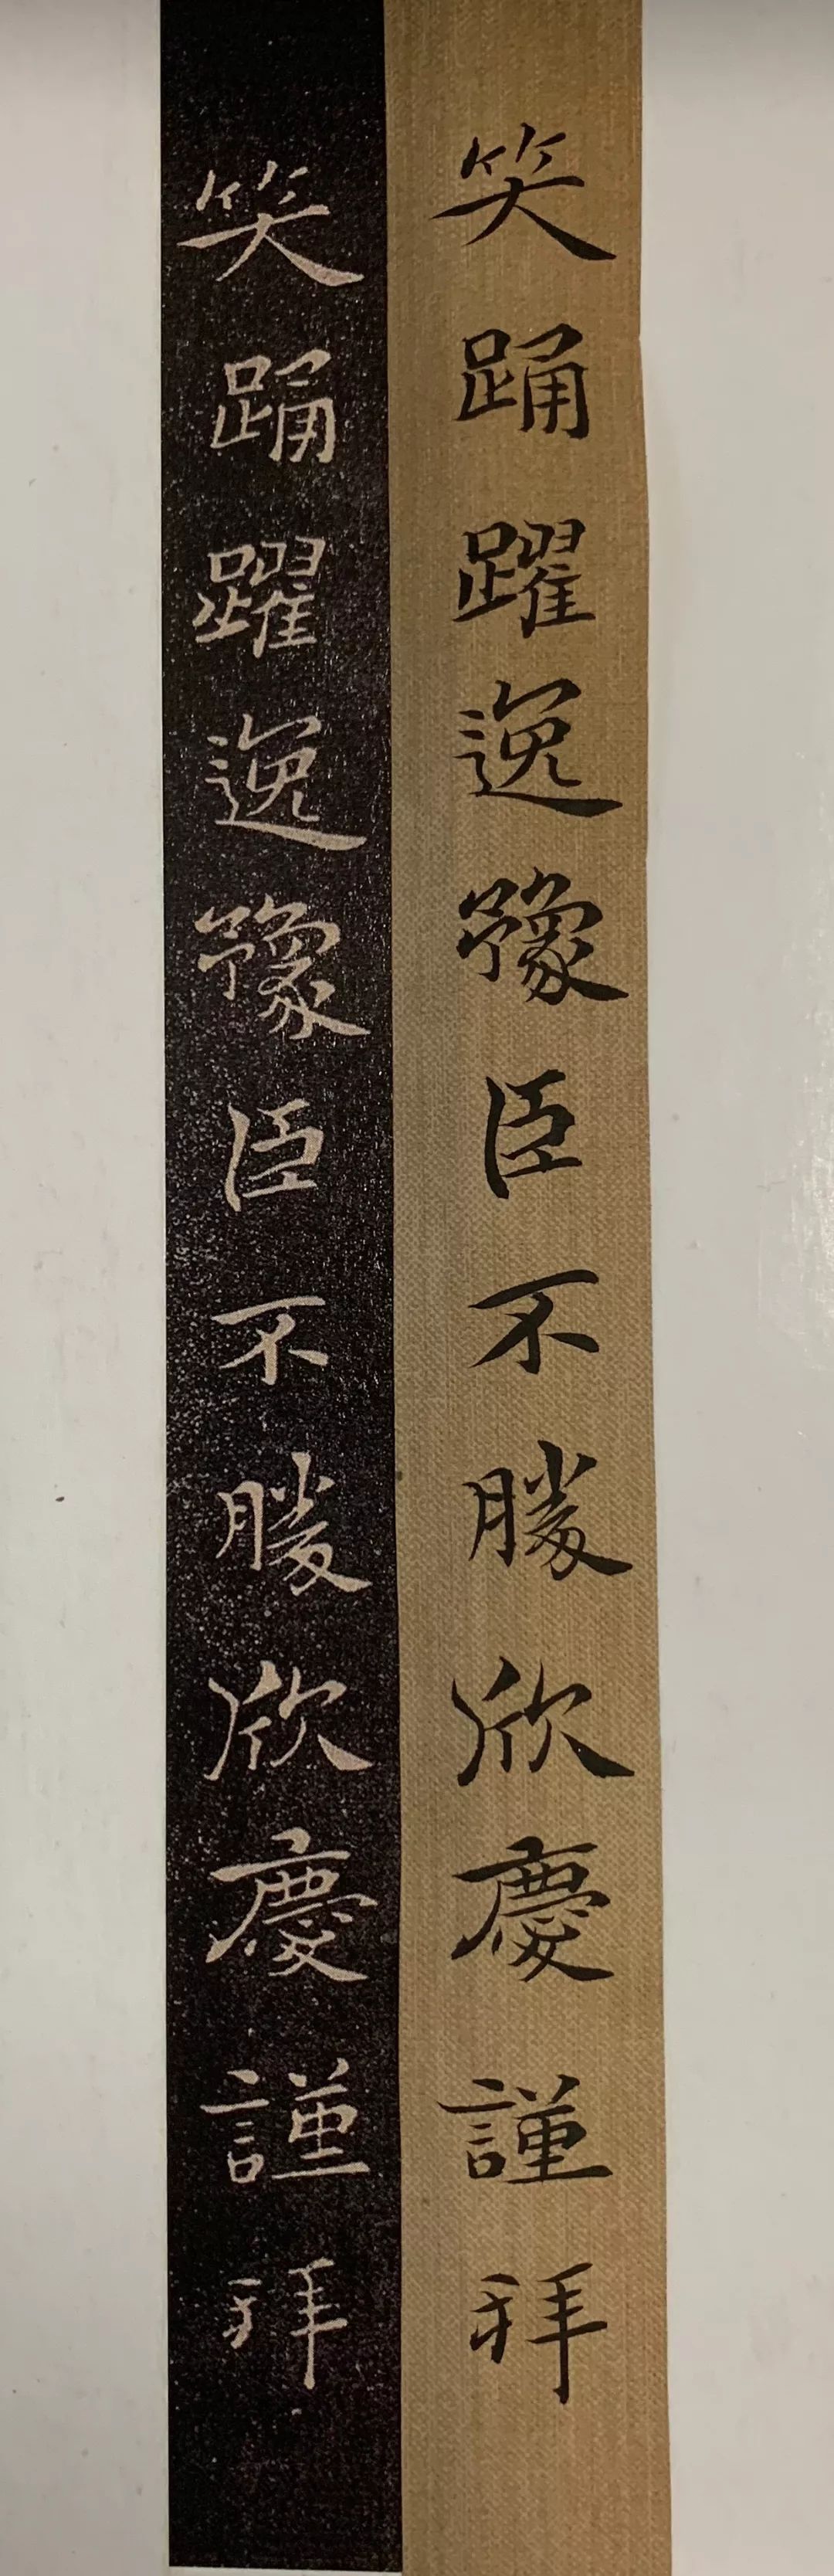 笑踊躍逸豫臣不勝欣慶謹拜
笑踊躍逸豫臣不勝欣慶謹拜